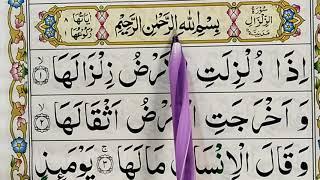 سُوْرَةُ الزِّلْزَالِ مَدَنِيَّةٌ
بِسْمِ اللهِ الرَّحْمٰنِ الرَّحِيْمِ
اٰيَاتُهَا ٨ رُكُوْعُهَا ١
اِذَا زُلْزِلَتِ الْاَرْضُ زِلْزَالَهَا ۙ ١
وَ اَخْرَجَتِ الْاَرْضُ اَثْقَالَهَا ۙ ٢
وَ قَالَ الْاِنْسَانُ مَا لَهَا ۚ ٣ يَوْمَئِذٍ